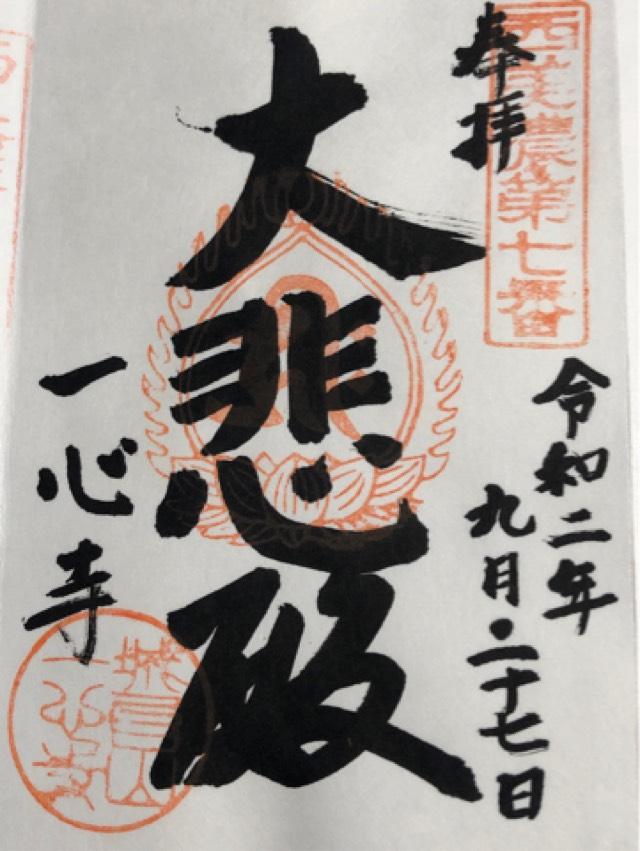 西美濃第七番
奉拝
令和二年
九月二十七日
大悲殿
一心寺